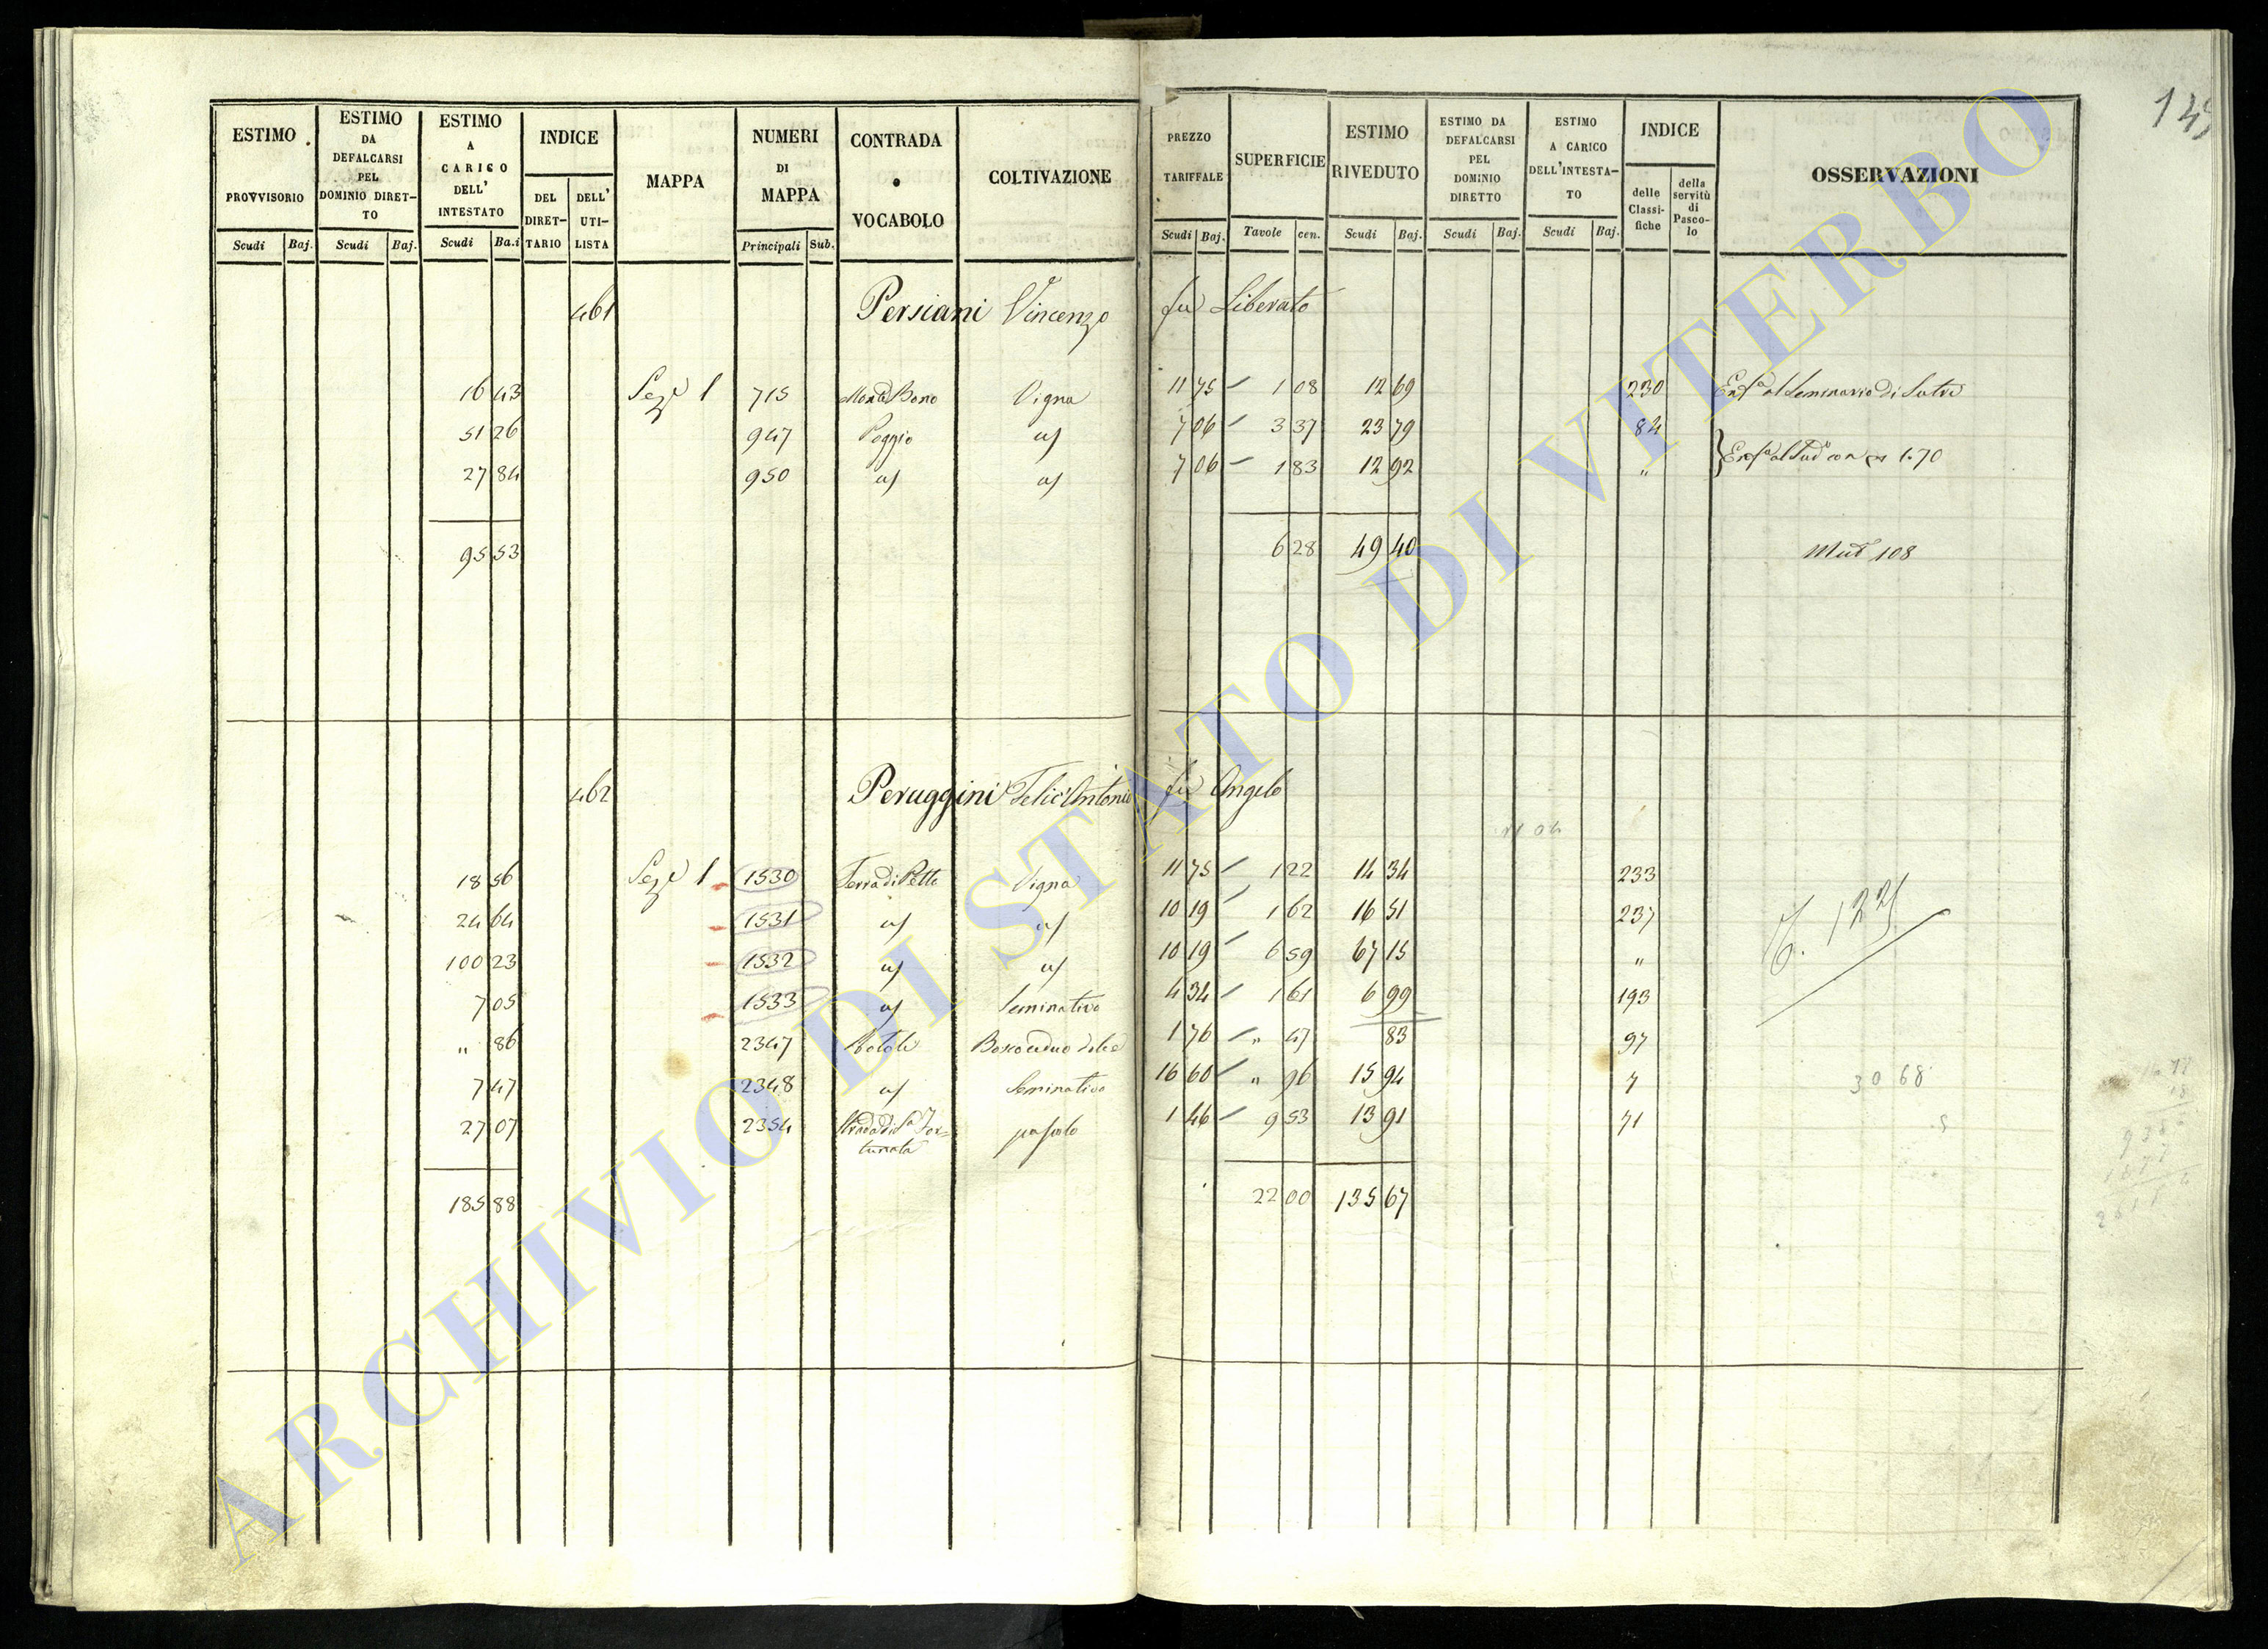 149
ESTIMO PROVVISORIO
ESTIMO DA DEFALCARSI PEL DOMINIO DIRETTO
ESTIMO A CARICO DELL' INTESTATO
INDICE
DEL DIRETTARIO
DELL' UTILISTA
MAPPA
NUMERI DI MAPPA
CONTRADA o VOCABOLO
COLTIVAZIONE
PREZZO TARIFFALE
SUPERFICIE
ESTIMO RIVEDUTO
ESTIMO DA DEFALCARSI PEL DOMINIO DIRETTO
ESTIMO A CARICO DELL'INTESTATO
INDICE
delle Classifiche
della servitù di Pascolo
OSSERVAZIONI
Scudi Baj. Scudi Baj. Scudi Ba.i Principali Sub. Scudi Baj. Tavole cen. Scudi Baj. Scudi Baj. Scudi Baj.
461 Persiani Vincenzo fu Liberato
16 43 Sez.e 1 715 Vigna 11 75 1 08 12 69 230 al Seminario di Sutri
51 26 947 Poggio a/ 7 06 3 37 23 79 84
27 84 950 a/ a/ 7 06 1 83 12 92 " con 1.70
95 53 6 28 49 40 Mut 108
462 Peruggini Felic'Antonio fu Angelo
18 56 Sez.e 1 1530 Terra di Vigna 11 75 1 22 14 34 233
24 64 1531 a/ a/ 10 19 1 62 16 51 237
100 23 1532 a/ a/ 10 19 6 59 67 15 "
7 05 1533 a/ Seminativo 4 34 1 61 6 99 193
" 86 2347 Bosco ceduo dolce 1 76 " 47 83 97
7 47 2348 a/ Seminativo 16 60 " 96 15 94 7
27 07 2354 Strada di S.a Fortunata pascolo 1 46 9 53 13 91 71
30 68
185 88 22 00 135 67
ARCHIVIO DI STATO DI VITERBO